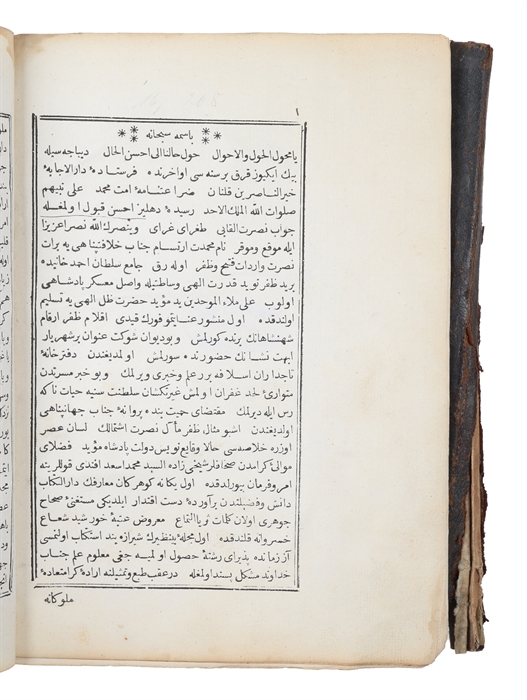 ١
باسمه سبحانه
يا محول الحول والاحوال حول حالنا الى احسن الحال ديباجه سيله
بيك ايكيوز قرق برسنه سى اواخرنده فرستادهٔ دار الاجابهٔ
خير الناصرين قلنان ضراعتنامهٔ امت محمد على نبيهم
صلوات الله الملك الاحد رسيدهٔ دهليز احسن قبول اولمغله
جواب نصرت القابى طغراى غراى وينصرك الله نصرا عزيزا
ايله موقع وموقر نام محمدت ارتسام جناب خلافتپناهى يه برات
نصرت واردات فتح وظفر اوله رق جامع سلطان احمد خانيده
بريد ظفر نويد قدرت الهى وساطتيله واصل معسكر پادشاهى
اولوب على ملاء الموحدين يد مؤيد حضرت ظل الهى يه تسليم
اولندقده اول منشور عنايتموفورك قيدى اقلام ظفر ارقام
شهنشاهانك برنده كورلمش وبوديوان شوكت عنوان برشهريار
ابهت نشانك حضورنده سورلمش اولمديغندن دفترخانهٔ
تاجداران اسلافه برر علم وخبرى ويرلمك وبو خبر مسرتدن
متوارئ لحد غفران اولمش غيرتكشان سلطنت سنيه حيات تاكه
رس ايله ديرلمك مقتضاى حميت بنده پروانهٔ جناب جهانپناهى
اولديغندن اشبو مثال ظفر مآل نصرت اشتمالك لسان عصر
اوزره خلاصه سى حالا وقايع نويس دولت پادشاه مؤيد فضلاى
موالئ كرامدن صحافلر شيخى زاده السيد محمد اسعد افندى قوللرينه
امر وفرمان بيورلدقده اول يكانه كوهركان معارفك دار الكتاب
دانش وفضيلتندن برآوردهٔ دست اقتدار ايلديكى مستغنئ صحاح
جوهرى اولان كلمات ثريا التماع معروض عتبهٔ خورشيد شعاع
خسروانه قلندقده اول مجلهٔ بينظيرك شيرازه بند استكتاب اولنمسى
آز زمانده پذيراى رشتهٔ حصول اولميه جغى معلوم علم جناب
خداوند مشكل پسند اولمغله درعقب طبع وتمثيلنه ارادهٔ كرامتعادهٔ
ملوكانه